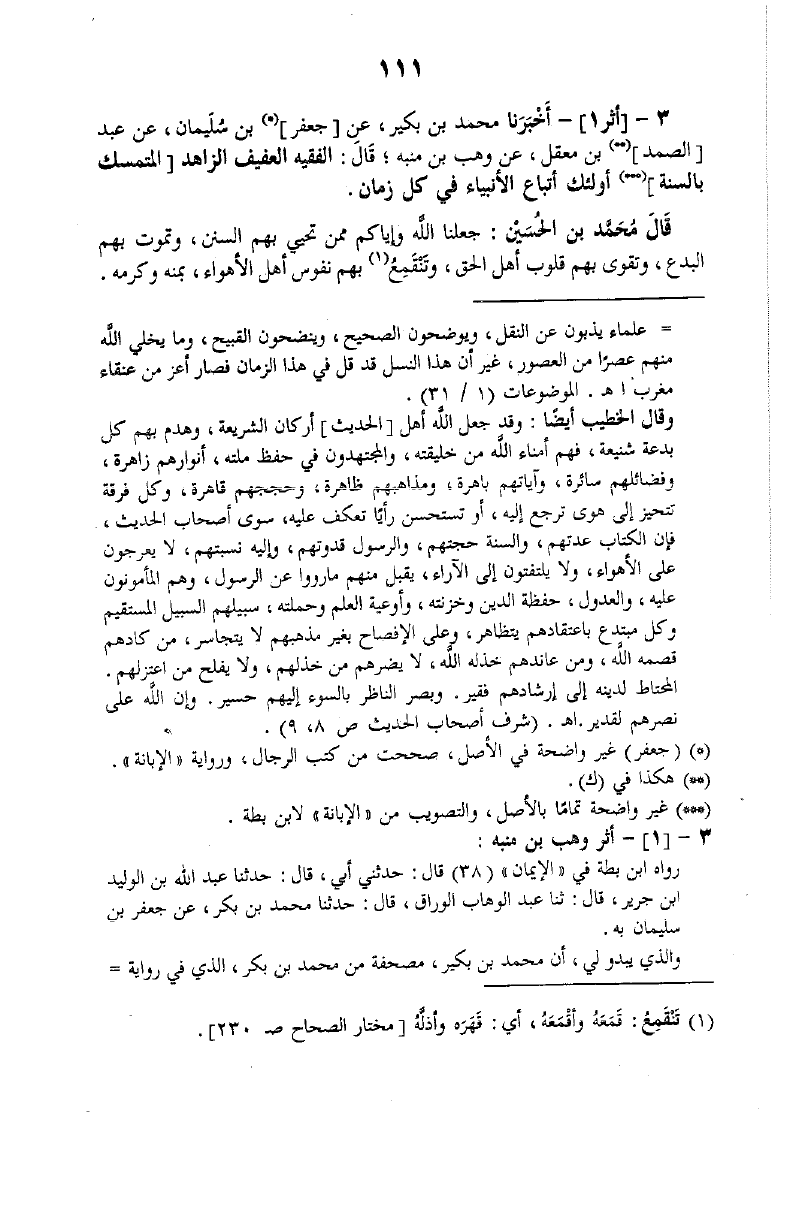 ١١١
٣ - [أثر١] - أَخْبَرَنا محمد بن بكير، عن [جعفر](*) بن سُلَيمان، عن عبد
[الصمد](**) بن معقل، عن وهب بن منبه؛ قَالَ: الفقيه العفيف الزاهد [المتمسك
بالسنة](***) أولئك أتباع الأنبياء في كل زمان.
قَالَ مُحَمَّد بن الحُسَيْن: جعلنا الله وإياكم ممن تحيي بهم السنن، وتموت بهم
البدع، وتقوى بهم قلوب أهل الحق، وتَنْقَمِعُ(١) بهم نفوس أهل الأهواء، بمنه وكرمه.
= علماء يذبون عن النقل، ويوضحون الصحيح، وينضحون القبيح، وما يخلي الله
منهم عصرًا من العصور، غير أن هذا النسل قد قل في هذا الزمان فصار أعز من عنقاء
مغرب ا هـ. الموضوعات (١ / ٣١).
وقال الخطيب أيضًا: وقد جعل الله أهل [الحديث] أركان الشريعة، وهدم بهم كل
بدعة شنيعة، فهم أمناء الله من خليقته، والمجتهدون في حفظ ملته، أنوارهم زاهرة،
وفضائلهم سائرة، وآياتهم باهرة، ومذاهبهم ظاهرة، وحججهم قاهرة، وكل فرقة
تتحيز إلى هوى ترجع إليه، أو تستحسن رأيًا تعكف عليه، سوى أصحاب الحديث،
فإن الكتاب عدتهم، والسنة حجتهم، والرسول قدوتهم، وإليه نسبتهم، لا يعرجون
على الأهواء، ولا يلتفتون إلى الآراء، يقبل منهم مارووا عن الرسول، وهم المأمونون
عليه، والعدول، حفظة الدين وخزنته، وأوعية العلم وحملته، سبيلهم السبيل المستقيم
وكل مبتدع باعتقادهم يتظاهر، وعلى الإفصاح بغير مذهبهم لا يتجاسر، من كادهم
قصمه الله، ومن عاندهم خذله الله، لا يضرهم من خذلهم، ولا يفلح من اعتزلهم.
المحتاط لدينه إلى إرشادهم فقير. وبصر الناظر بالسوء إليهم حسير. وإن الله على
نصرهم لقدير.اهـ. (شرف أصحاب الحديث ص ٨، ٩).
(*) (جعفر) غير واضحة في الأصل، صححت من كتب الرجال، ورواية «الإبانة».
(**) هكذا في (ك).
(***) غير واضحة تمامًا بالأصل، والتصويب من «الإبانة» لابن بطة.
٣ - [١] - أثر وهب بن منبه:
رواه ابن بطة في «الإيمان» (٣٨) قال: حدثني أبي، قال: حدثنا عبد الله بن الوليد
ابن جرير، قال: ثنا عبد الوهاب الوراق، قال: حدثنا محمد بن بكر، عن جعفر بن
سليمان به.
والذي يبدو لي، أن محمد بن بكير، مصحفة من محمد بن بكر، الذي في رواية =
(١) تَنْقَمِعُ: قَمَعَهُ وأقْمَعَهُ، أي: قَهَرَه وأذلَّهُ [مختار الصحاح صـ ٢٣٠].